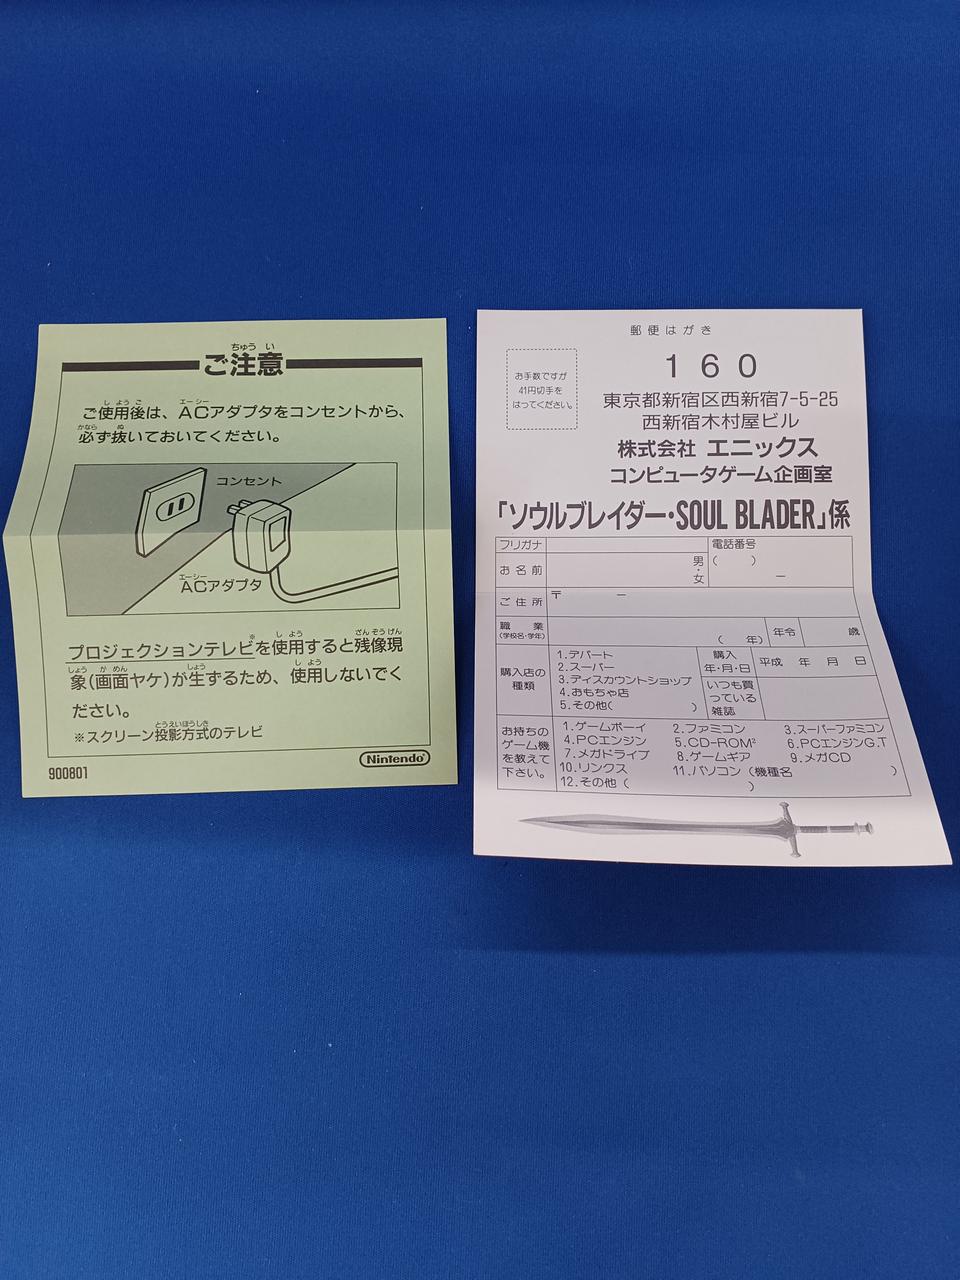 ご注意
ご使用後は、ACアダプタをコンセントから、
必ず抜いておいてください。
コンセント
ACアダプタ
プロジェクションテレビ※を使用すると残像現
象(画面ヤケ)が生ずるため、使用しないでく
ださい。
※スクリーン投影方式のテレビ
900801
Nintendo
郵便はがき
お手数ですが
41円切手を
はってください。
160
東京都新宿区西新宿7-5-25
西新宿木村屋ビル
株式会社 エニックス
コンピュータゲーム企画室
「ソウルブレイダー・SOUL BLADER」係
フリガナ
電話番号
お名前
男・女
( ) －
ご住所
〒 －
職業
(学校名・学年)
( 年)
年令
歳
購入店の
種類
1.デパート
2.スーパー
3.ディスカウントショップ
4.おもちゃ店
5.その他( )
購入
年・月・日
平成 年 月 日
いつも買
っている
雑誌
お持ちの
ゲーム機
を教えて
下さい。
1.ゲームボーイ 2.ファミコン 3.スーパーファミコン
4.PCエンジン 5.CD-ROM² 6.PCエンジンG.T
7.メガドライブ 8.ゲームギア 9.メガCD
10.リンクス 11.パソコン(機種名 )
12.その他( )